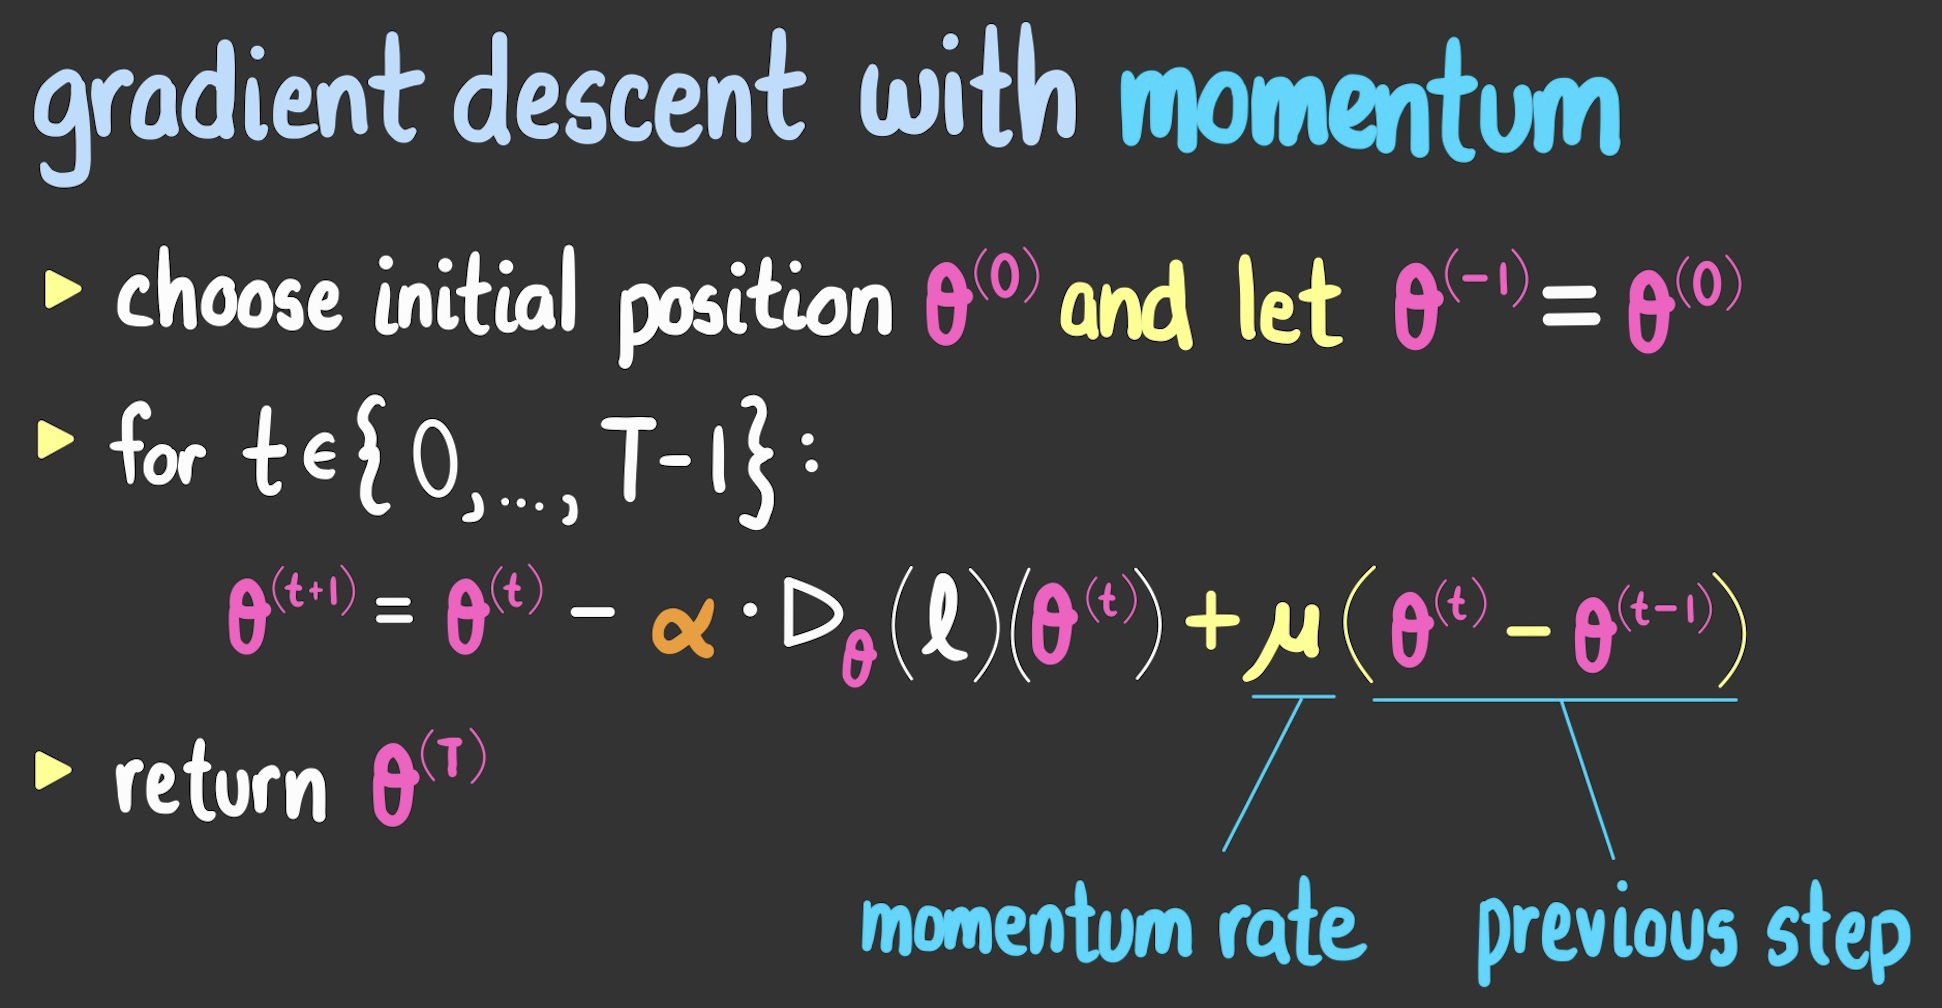 gradient descent with momentum
▶ choose initial position θ⁽⁰⁾ and let θ⁽⁻¹⁾ = θ⁽⁰⁾
▶ for t ∈ {0, ..., T-1}:
θ⁽ᵗ⁺¹⁾ = θ⁽ᵗ⁾ − α · ▷_θ (ℓ)(θ⁽ᵗ⁾) + μ(θ⁽ᵗ⁾ − θ⁽ᵗ⁻¹⁾)
▶ return θ⁽ᵀ⁾
momentum rate previous step